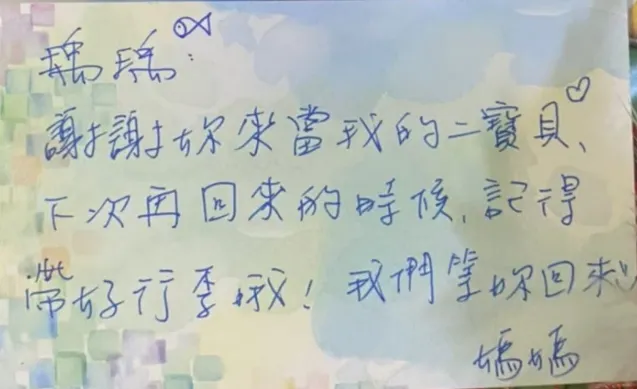 謝謝妳來當我的二寶貝、
下次再回來的時候，記得
帶好行李哦！我們等妳回來
媽媽